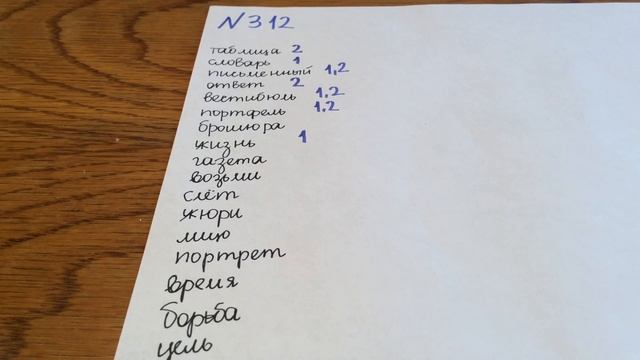 N 312
таблица 2
словарь 1
письменный 1,2
ответ 2
вестибюль 1,2
портфель 1,2
брошюра
жизнь 1
газета
возьми
слёт
жюри
лицо
портрет
время
борьба
цель